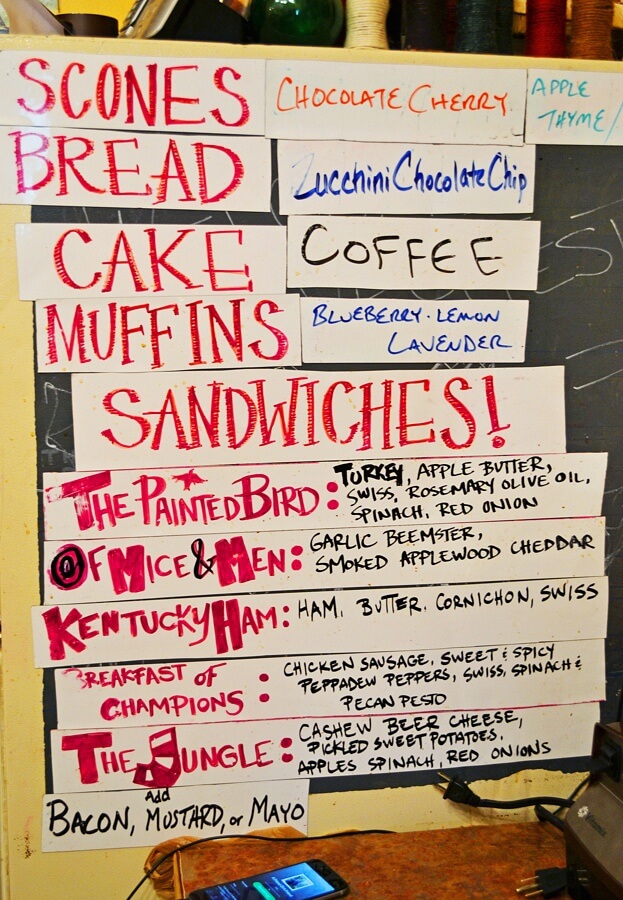 SCONES CHOCOLATE CHERRY APPLE
THYME/
BREAD Zucchini Chocolate Chip
CAKE COFFEE
MUFFINS BLUEBERRY · LEMON
LAVENDER
SANDWICHES!
THE PAINTED BIRD: TURKEY, APPLE BUTTER,
SWISS, ROSEMARY OLIVE OIL,
SPINACH, RED ONION
OF MICE & MEN: GARLIC BEEMSTER,
SMOKED APPLEWOOD CHEDDAR
KENTUCKY HAM: HAM, BUTTER, CORNICHON, SWISS
BREAKFAST OF
CHAMPIONS : CHICKEN SAUSAGE, SWEET & SPICY
PEPPADEW PEPPERS, SWISS, SPINACH &
PECAN PESTO
THE JUNGLE: CASHEW BEER CHEESE,
PICKLED SWEET POTATOES,
APPLES SPINACH, RED ONIONS
Add
BACON, MUSTARD, or MAYO